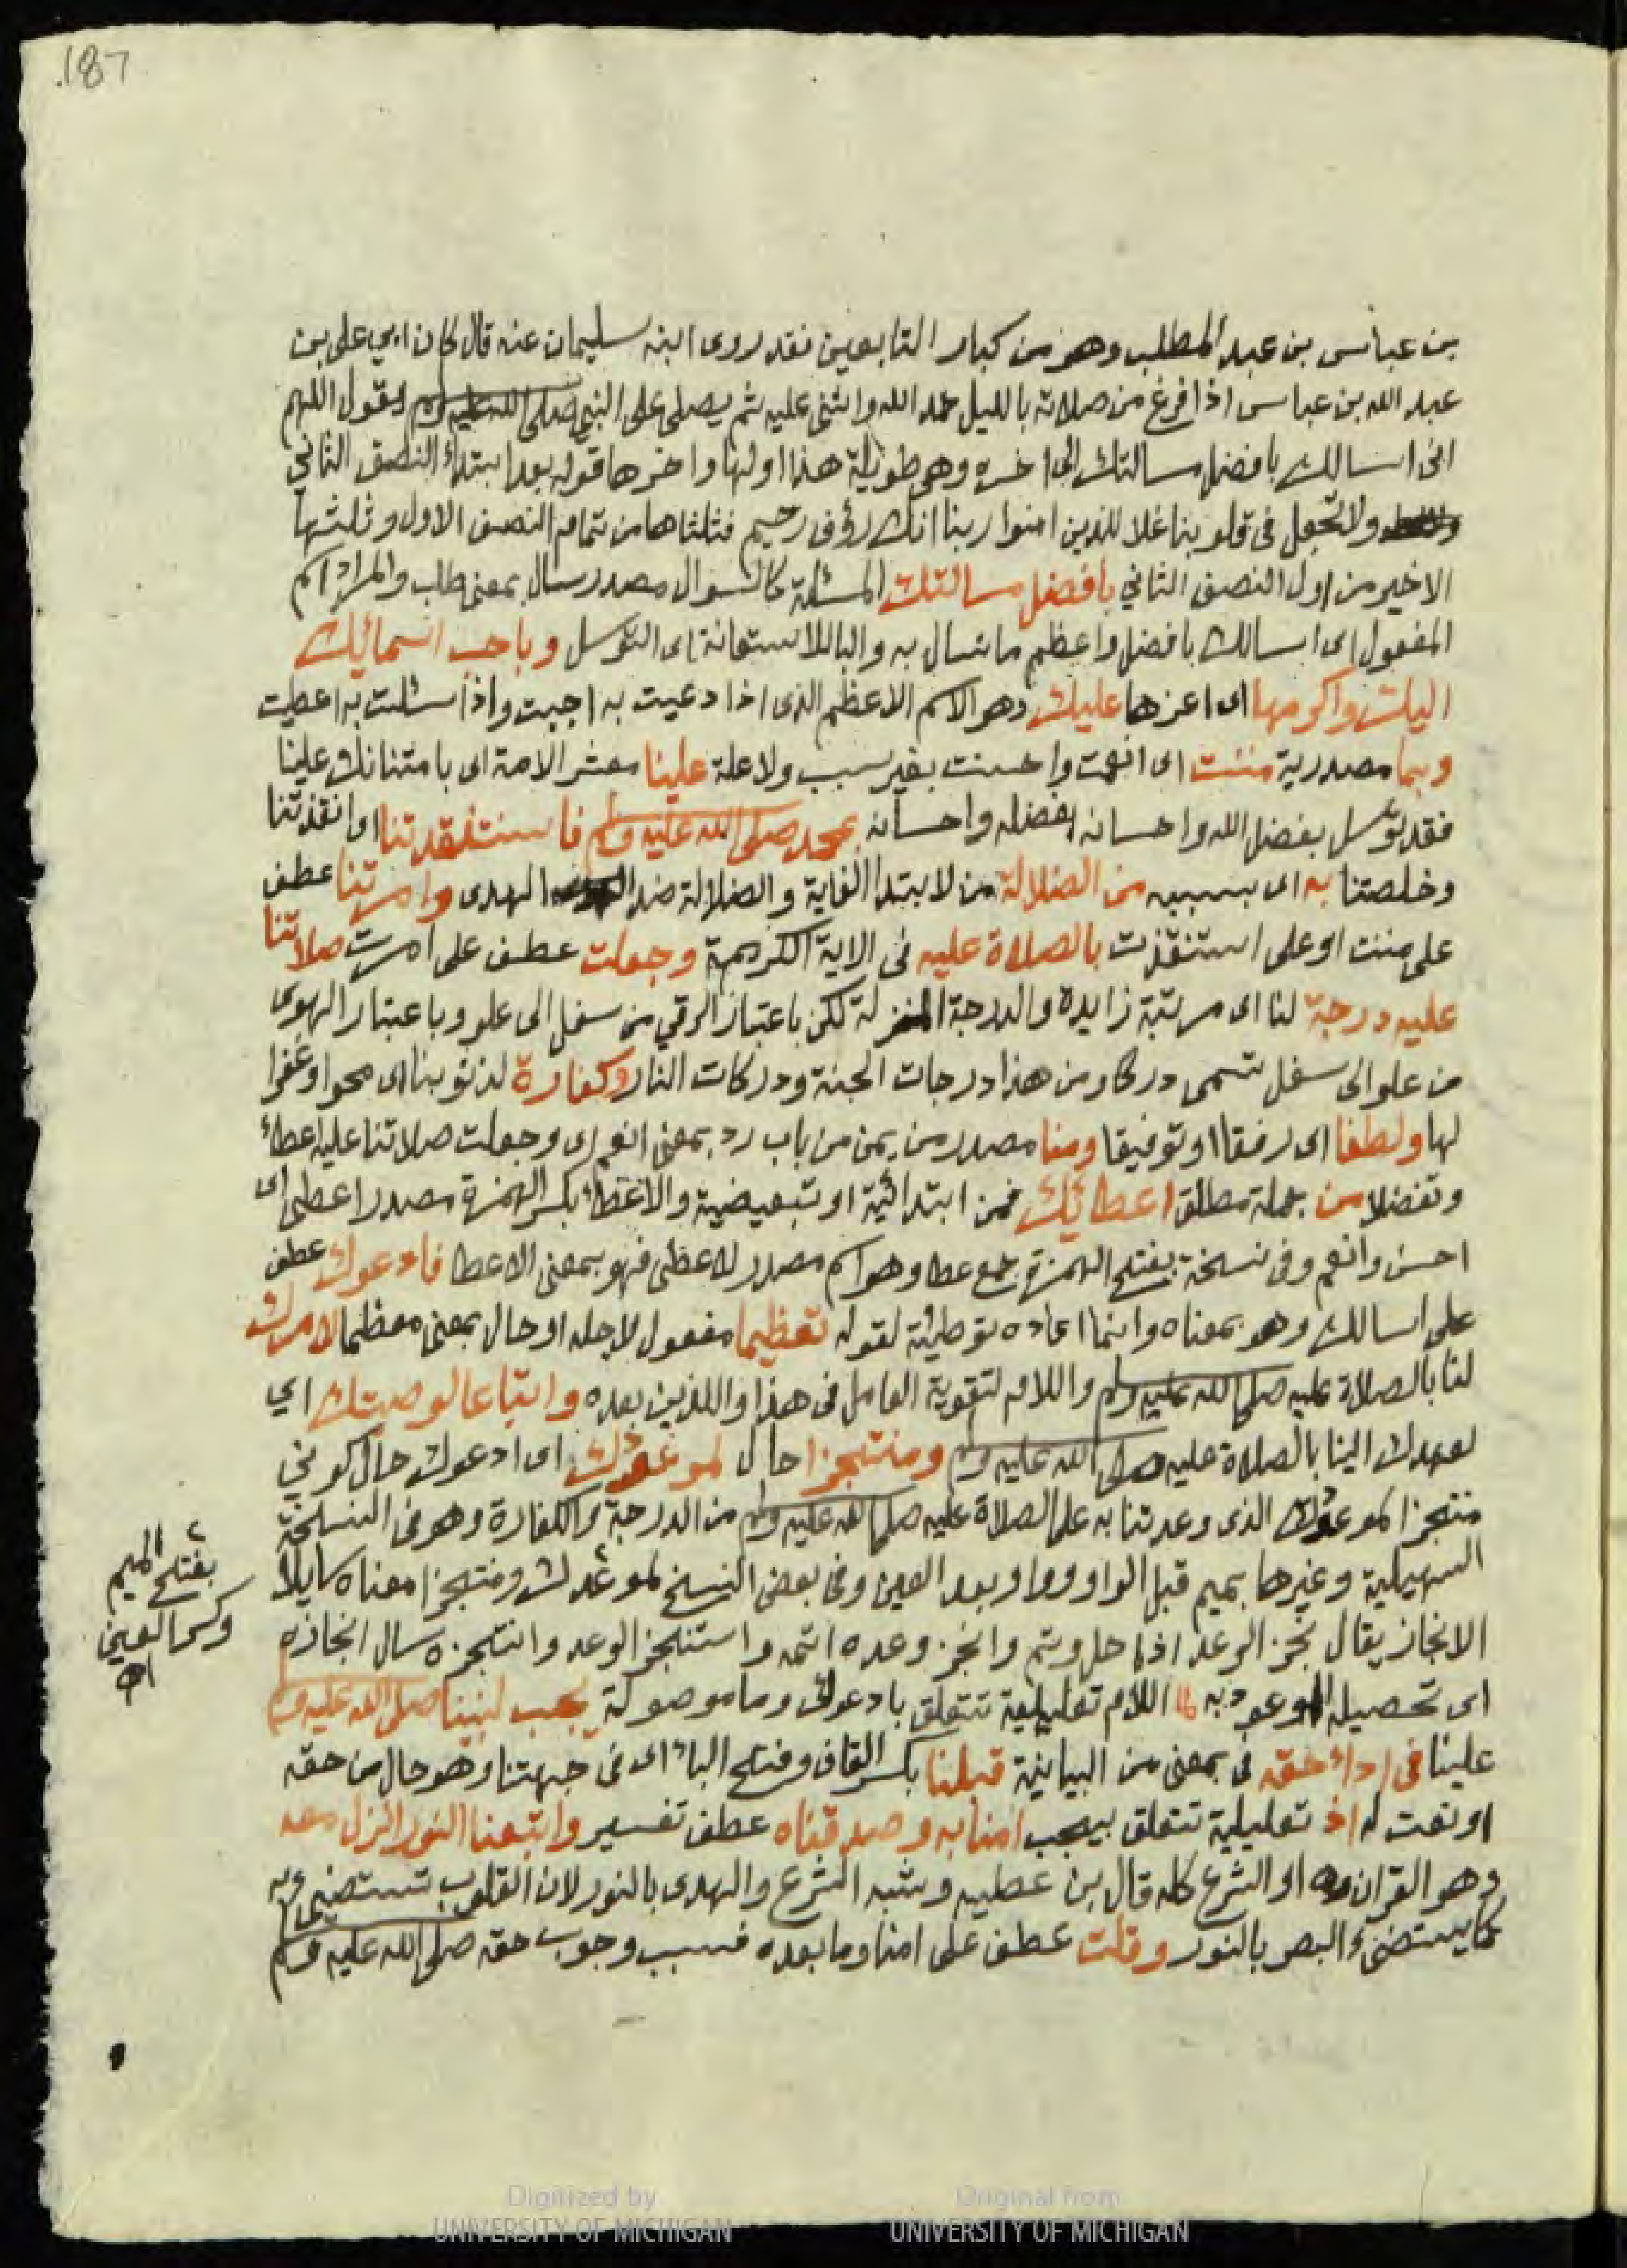 187
بن عباس بن عبد المطلب وهو من كبار التابعين فقد روى ابنه سليمان عنه قال كان ابي علي بن
عبد الله بن عباس اذا فرغ من صلاته بالليل حمد الله واثنى عليه ثم يصلى على النبي صلى الله عليه وسلم يقول اللهم
انى اسالك بافضل مسالتك الى اخره وهى طويلة هذا اولها واخرها قوله بعد ابتداء النصف الثاني
ولا تجعل فى قلوبنا غلا للذين امنوا ربنا انك رؤف رحيم فثلثاها من تمام النصف الاول وثلثها
الاخير من اول النصف الثاني بافضل مسالتك المسئلة كالسوال مصدر سال بمعنى طلب والمراد اسم
المفعول اى اسالك بافضل واعظم ما نسال به والبا للاستعانة اى التوسل وباحب اسمائك
اليك واكرمها اى اعزها عليك وهو الاسم الاعظم الذى اذا دعيت به اجبت واذا سئلت به اعطيت
وبما مصدرية مننت اى انعمت واحسنت بغير سبب ولا علة علينا معشر الامة اى بامتنانك علينا
فقد توسل بفضل الله واحسانه لفضله واحسانه بمحمد صلى الله عليه وسلم فاستنقذتنا اى انقذتنا
وخلصتنا به اى بسببه من الضلالة من لابتدا الغاية والضلالة ضد الهدى وامرتنا عطف
على مننت او على استنقذت بالصلاة عليه فى الاية الكريمة وجعلت عطف على امرت صلاتنا
عليه درجة لنا اى مرتبة زايدة والدرجة المنزلة لكن باعتبار الرقي من سفل الى علو وباعتبار الهوى
من علو الى سفل تسمى دركا ومن هذا درجات الجنة ودركات النار وكفارة لذنوبنا اى محوا وغفرا
لها ولطفا اى رفقا او توفيقا ومنا مصدر من يمن من باب رد بمعنى انعم اى وجعلت صلاتنا عليه عطاء
وتفضلا من جملة مطلق اعطائك فمن ابتدائية او تبعيضية والاعطاء بكسر الهمزة مصدر اعطى اى
احسن وانعم وفى نسخة بفتح الهمزة جمع عطا وهو اسم مصدر لاعطى فهو بمعنى الاعطا فادعوك عطف
على اسالك وهو بمعناه وانما اعاده توطئة لقوله تعظيما مفعول لاجله او حال بمعنى معظما لامرك
لنا بالصلاة عليه صلى الله عليه وسلم واللام لتقوية العامل فى هذا واللذين بعده واتباعا لوصيتك اي
لعهدك الينا بالصلاة عليه صلى الله عليه وسلم ومنتجزا حال لموعودك اى ادعوك حال كوني
منتجزا لموعودك الذى وعدتنا به على الصلاة عليه صلى الله عليه وسلم من الدرجة والكفارة وهو فى النسخة
السهيلية وغيرها بميم قبل الواو وواو بعد العين وفى بعض النسخ لموعدك ومنتجزا معناه سايلا
الانجاز يقال نجز الوعد اذا حل وتم وانجز وعده اتمه واستنجز الوعد وانتجزه سال انجازه
اى تحصيل الموعود به لما اللام تعليلية تتعلق بادعوك وما موصولة يجب لنبينا صلى الله عليه وسلم
علينا فى اداء حقه فى بمعنى من البيانية قبلنا بكسر القاف وفتح الباء اى فى جهتنا وهو حال من حقه
او نعت له اذ تعليلية تتعلق بيجب امنا به وصدقناه عطف تفسير واتبعنا النور الذى انزل معه
وهو القران او الشرع كله قال بن عطيه وشبه الشرع والهدى بالنور لان القلوب تستضيء به
كما يستضيء البصر بالنور وقلت عطف على امنا وما بعده فسبب وجوب حقه صلى الله عليه وسلم
بفتح الميم
وكسر العين
اه
Digitized by
UNIVERSITY OF MICHIGAN
Original from
UNIVERSITY OF MICHIGAN